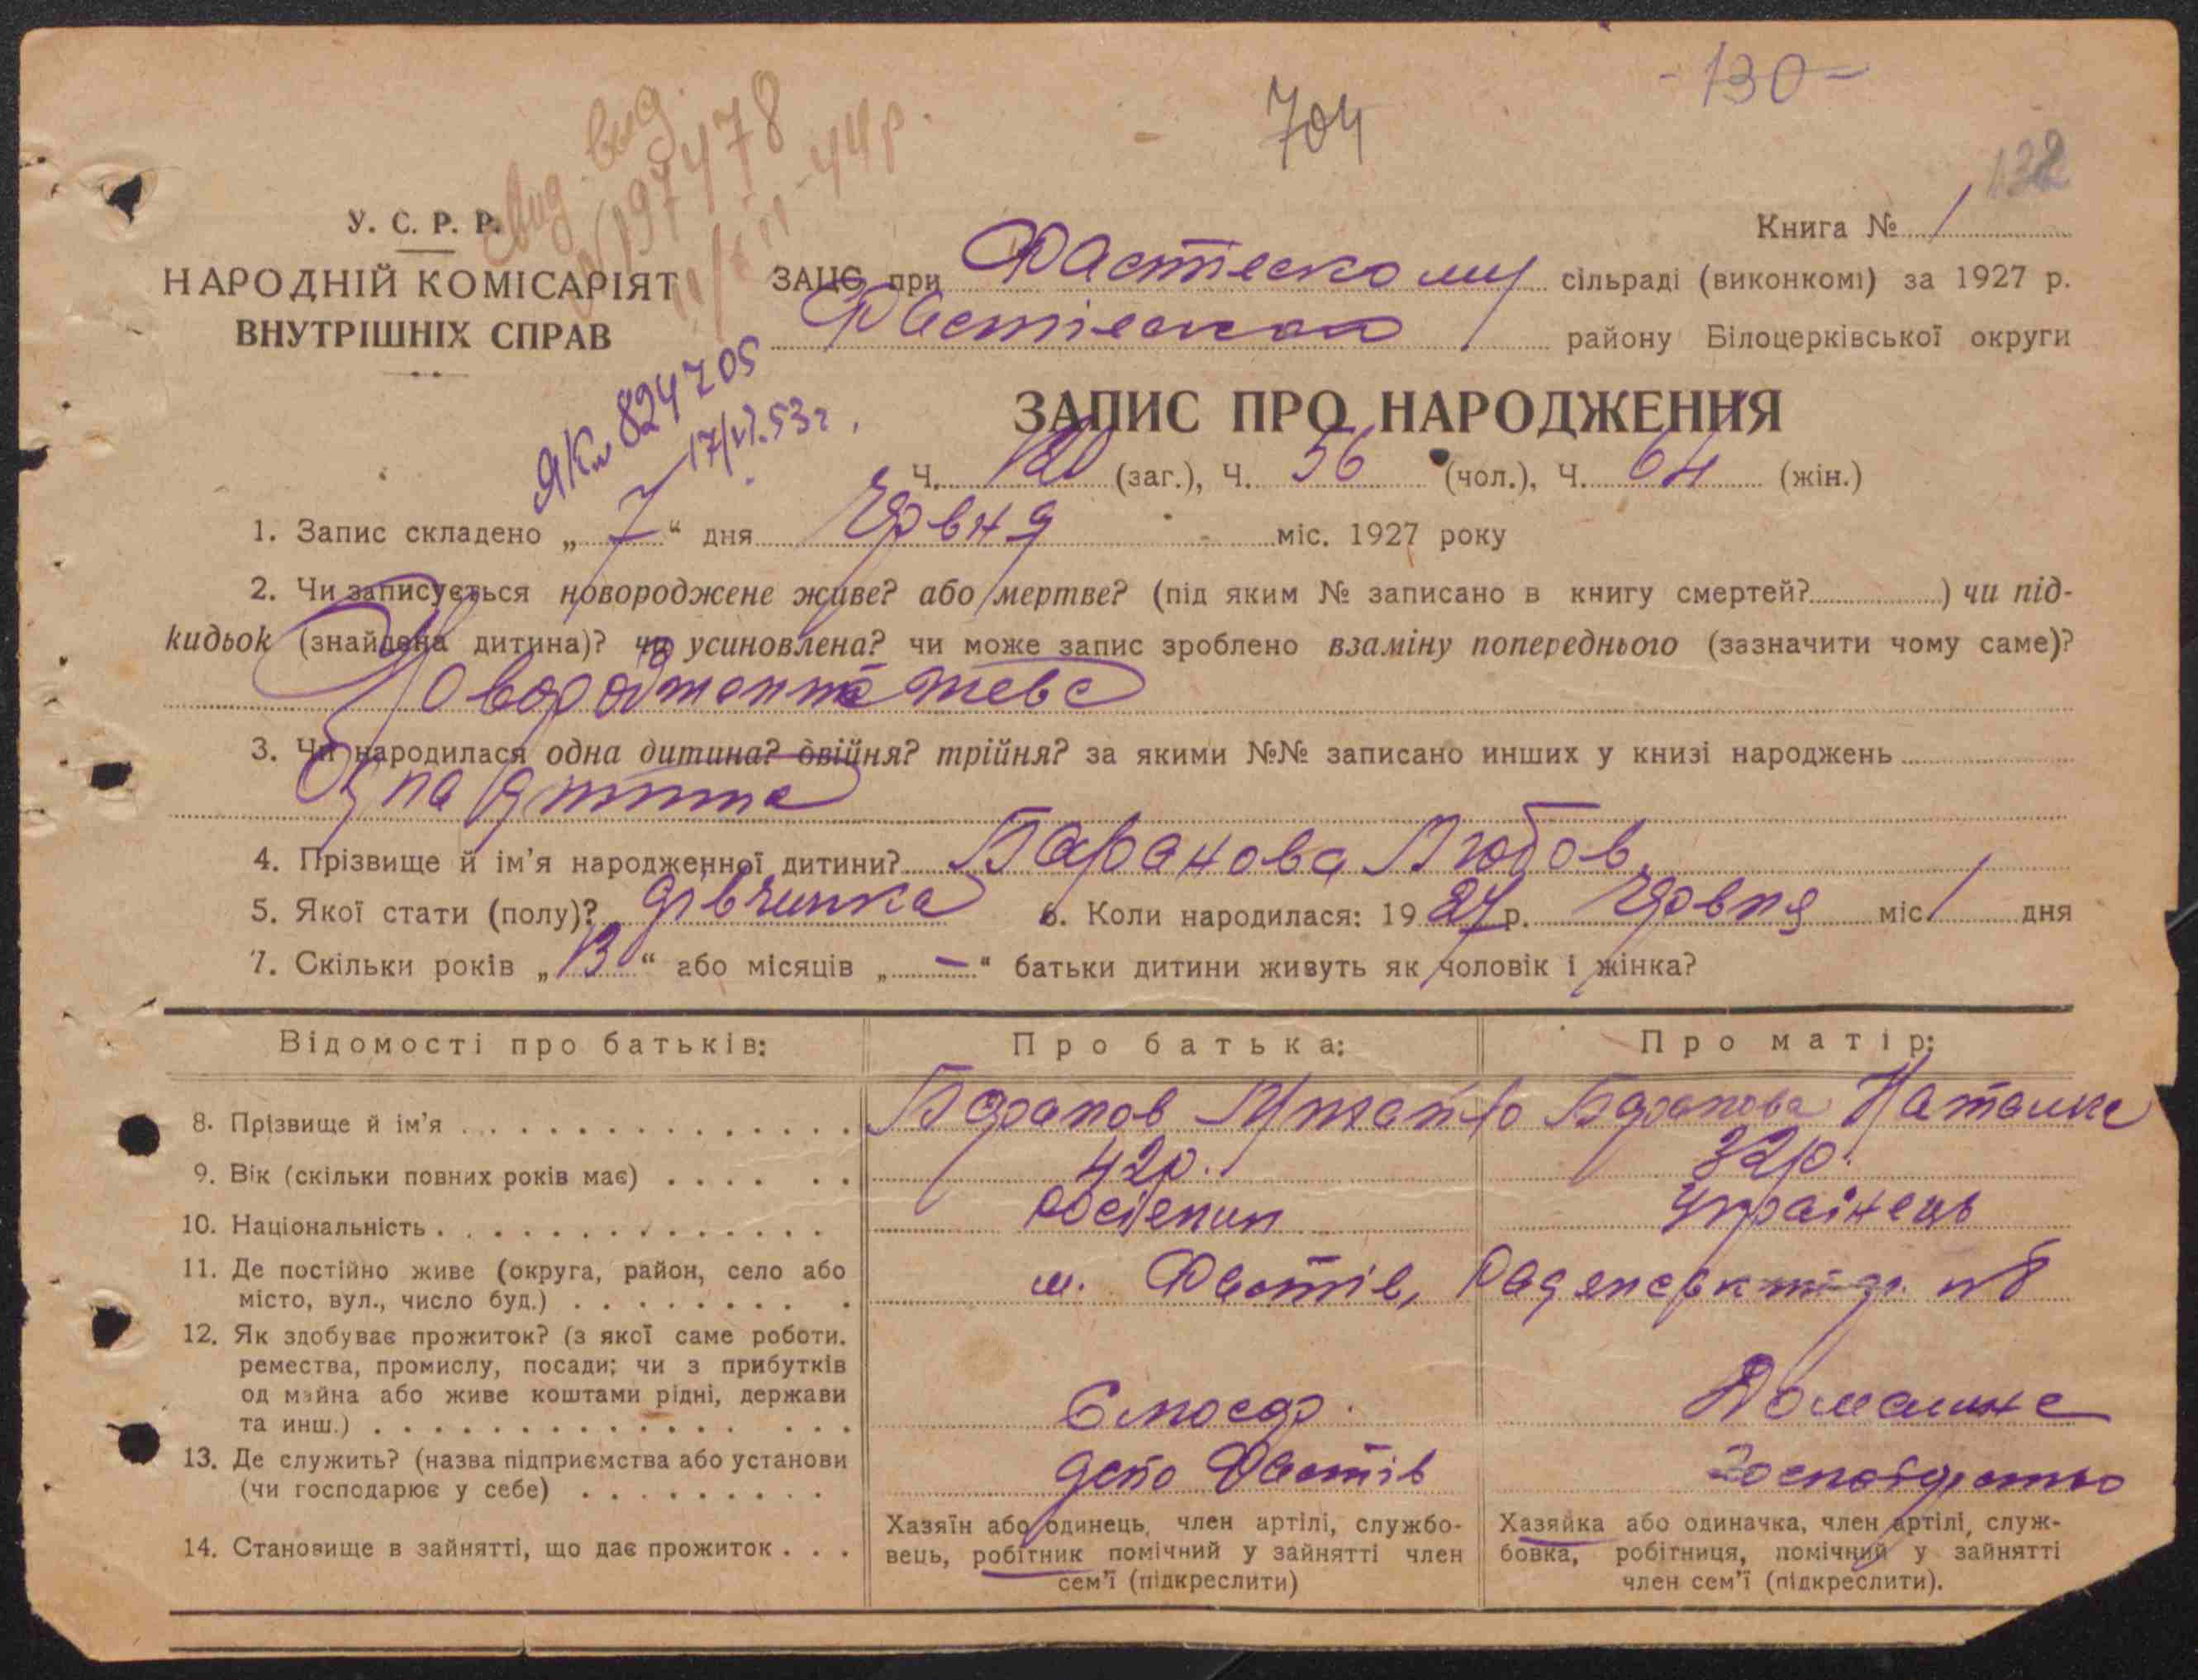 - 130 -
704
132
Свид. выд.
№ 197478
-44р.
У. С. Р. Р.
НАРОДНІЙ КОМІСАРІЯТ
ВНУТРІШНІХ СПРАВ
Книга № 1
ЗАЦС при Фастівському сільраді (виконкомі) за 1927 р.
Фастівського району Білоцерківської округи
ЯК № 824705
17/VI.53г.
ЗАПИС ПРО НАРОДЖЕННЯ
Ч. 120 (заг.), Ч. 56 (чол.), Ч. 64 (жін.)
1. Запис складено „ 7 “ дня Червня міс. 1927 року
2. Чи записується новороджене живе? або мертве? (під яким № записано в книгу смертей?) чи під-
кидьок (знайдена дитина)? чи усиновлена? чи може запис зроблено взаміну попереднього (зазначити чому саме)?
Новородження живе
3. Чи народилася одна дитина? двійня? трійня? за якими №№ записано инших у книзі народжень
Одна дитина
4. Прізвище й ім’я народженної дитини? Баранова Любов
5. Якої стати (полу)? дівчинка 6. Коли народилася: 1927 р. Червня міс. 1 дня
7. Скільки років „ 13 “ або місяців „ — “ батьки дитини живуть як чоловік і жінка?
Відомості про батьків: Про батька: Про матір:
8. Прізвище й ім’я Баранов Баранова Наталка
9. Вік (скільки повних років має) 42р. 32р.
10. Національність росіенин українець
11. Де постійно живе (округа, район, село або
місто, вул., число буд.) м. Фастів, №8
12. Як здобуває прожиток? (з якої саме роботи,
ремества, промислу, посади; чи з прибутків
од майна або живе коштами рідні, держави
та инш.) Слюсар. Домашнє
13. Де служить? (назва підприємства або установи
(чи господарює у себе) депо Фастів господарство
14. Становище в зайнятті, що дає прожиток
Хазяїн або одинець, член артілі, службо-
вець, робітник помічний у зайнятті член
сем’ї (підкреслити)
Хазяйка або одиначка, член артілі, служ-
бовка, робітниця, помічний у зайнятті
член сем’ї (підкреслити).